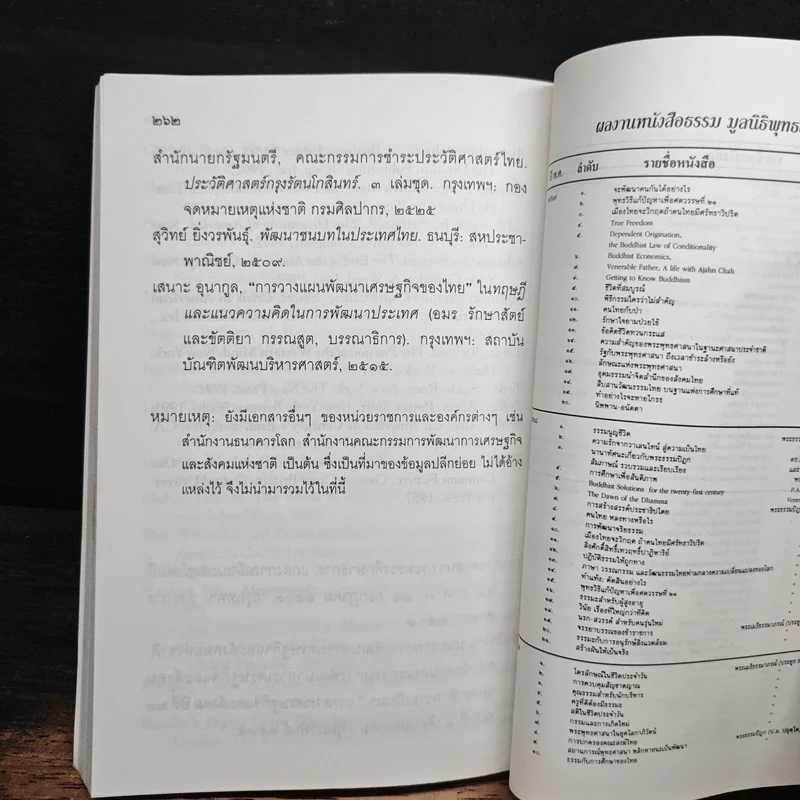 ๒๖๒
สำนักนายกรัฐมนตรี, คณะกรรมการชำระประวัติศาสตร์ไทย.
ประวัติศาสตร์กรุงรัตนโกสินทร์. ๓ เล่มชุด. กรุงเทพฯ: กอง
จดหมายเหตุแห่งชาติ กรมศิลปากร, ๒๕๒๕
สุวิทย์ ยิ่งวรพันธุ์. พัฒนาชนบทในประเทศไทย. ธนบุรี: สหประชา-
พาณิชย์, ๒๕๐๙.
เสนาะ อุนากูล, “การวางแผนพัฒนาเศรษฐกิจของไทย” ในทฤษฎี
และแนวความคิดในการพัฒนาประเทศ (อมร รักษาสัตย์
และขัตติยา กรรณสูต, บรรณาธิการ). กรุงเทพฯ: สถาบัน
บัณฑิตพัฒนบริหารศาสตร์, ๒๕๑๕.
หมายเหตุ: ยังมีเอกสารอื่นๆ ของหน่วยราชการและองค์กรต่างๆ เช่น
สำนักงานธนาคารโลก สำนักงานคณะกรรมการพัฒนาการเศรษฐกิจ
และสังคมแห่งชาติ เป็นต้น ซึ่งเป็นที่มาของข้อมูลปลีกย่อย ไม่ได้อ้าง
แหล่งไว้ จึงไม่นำมารวมไว้ในที่นี้
ผลงานหนังสือธรรม มูลนิธิพุทธ
ปี พ.ศ. ลำดับ รายชื่อหนังสือ
๑. จะพัฒนาคนกันได้อย่างไร
๒. พุทธวิธีแก้ปัญหาเพื่อศตวรรษที่ ๒๑
๓. เมืองไทยจะวิกฤตถ้าคนไทยมีศรัทธาวิปริต
๔. True Freedom
๕. Dependent Origination,
the Buddhist Law of Conditionality
๖. Buddhist Economics,
๗. Venerable Father, A life with Ajahn Chah
๘. Getting to Know Buddhism
๙. ชีวิตที่สมบูรณ์
๑๐. พิธีกรรมใครว่าไม่สำคัญ
๑๑. คนไทยกับป่า
๑๒. รักษาใจยามป่วยไข้
๑๓. ข้อคิดชีวิตทวนกระแส
๑๔. ความสำคัญของพระพุทธศาสนาในฐานะศาสนาประจำชาติ
๑๕. รัฐกับพระพุทธศาสนา ถึงเวลาชำระล้างหรือยัง
๑๖. ลักษณะแห่งพระพุทธศาสนา
๑๗. อุดมธรรมนำจิตสำนึกของสังคมไทย
๑๘. สืบสานวัฒนธรรมไทย บนฐานแห่งการศึกษาที่แท้
๑๙. ทำอย่างไรจะหายโกรธ
๒๐. นิพพาน-อนัตตา
๑. ธรรมนูญชีวิต
๒. ความรักจากวาเลนไทน์ สู่ความเป็นไทย
นานาทัศนะเกี่ยวกับพระธรรมปิฎก
สัมภาษณ์ รวบรวมและเรียบเรียง
การศึกษาเพื่อสันติภาพ
Buddhist Solutions for the twenty-first century
The Dawn of the Dhamma
การสร้างสรรค์ประชาธิปไตย
คนไทย หลงทางหรือไร
การพัฒนาจริยธรรม
เมืองไทยจะวิกฤต ถ้าคนไทยมีศรัทธาวิปริต
สิ่งศักดิ์สิทธิ์เทวฤทธิ์ปาฏิหาริย์
ปฏิบัติธรรมให้ถูกทาง
ภาษา วรรณกรรม และวัฒนธรรมไทยท่ามกลางความเปลี่ยนแปลงของโลก
ทำแท้ง: ตัดสินอย่างไร
พุทธวิธีแก้ปัญหาเพื่อศตวรรษที่ ๒๑
ธรรมะสำหรับผู้สูงอายุ
วินัย เรื่องที่ใหญ่กว่าที่คิด
นรก-สวรรค์ สำหรับคนรุ่นใหม่
จรรยาบรรณของข้าราชการ
ธรรมะกับการอนุรักษ์สิ่งแวดล้อม
สร้างฝันให้เป็นจริง
๑. ไตรลักษณ์ในชีวิตประจำวัน
๒. การควบคุมสัญชาตญาณ
๓. คุณธรรมสำหรับนักบริหาร
๔. ครูที่ดีต้องมีธรรมะ
๕. สติในชีวิตประจำวัน
๖. กรรมและการเกิดใหม่
๗. พระพุทธศาสนาในยุคโลกาภิวัตน์
๘. การปกครองคณะสงฆ์ไทย
๙. สถานการณ์พุทธศาสนา พลิกหายนะเป็นพัฒนา
๑๐. ธรรมกับการศึกษาของไทย